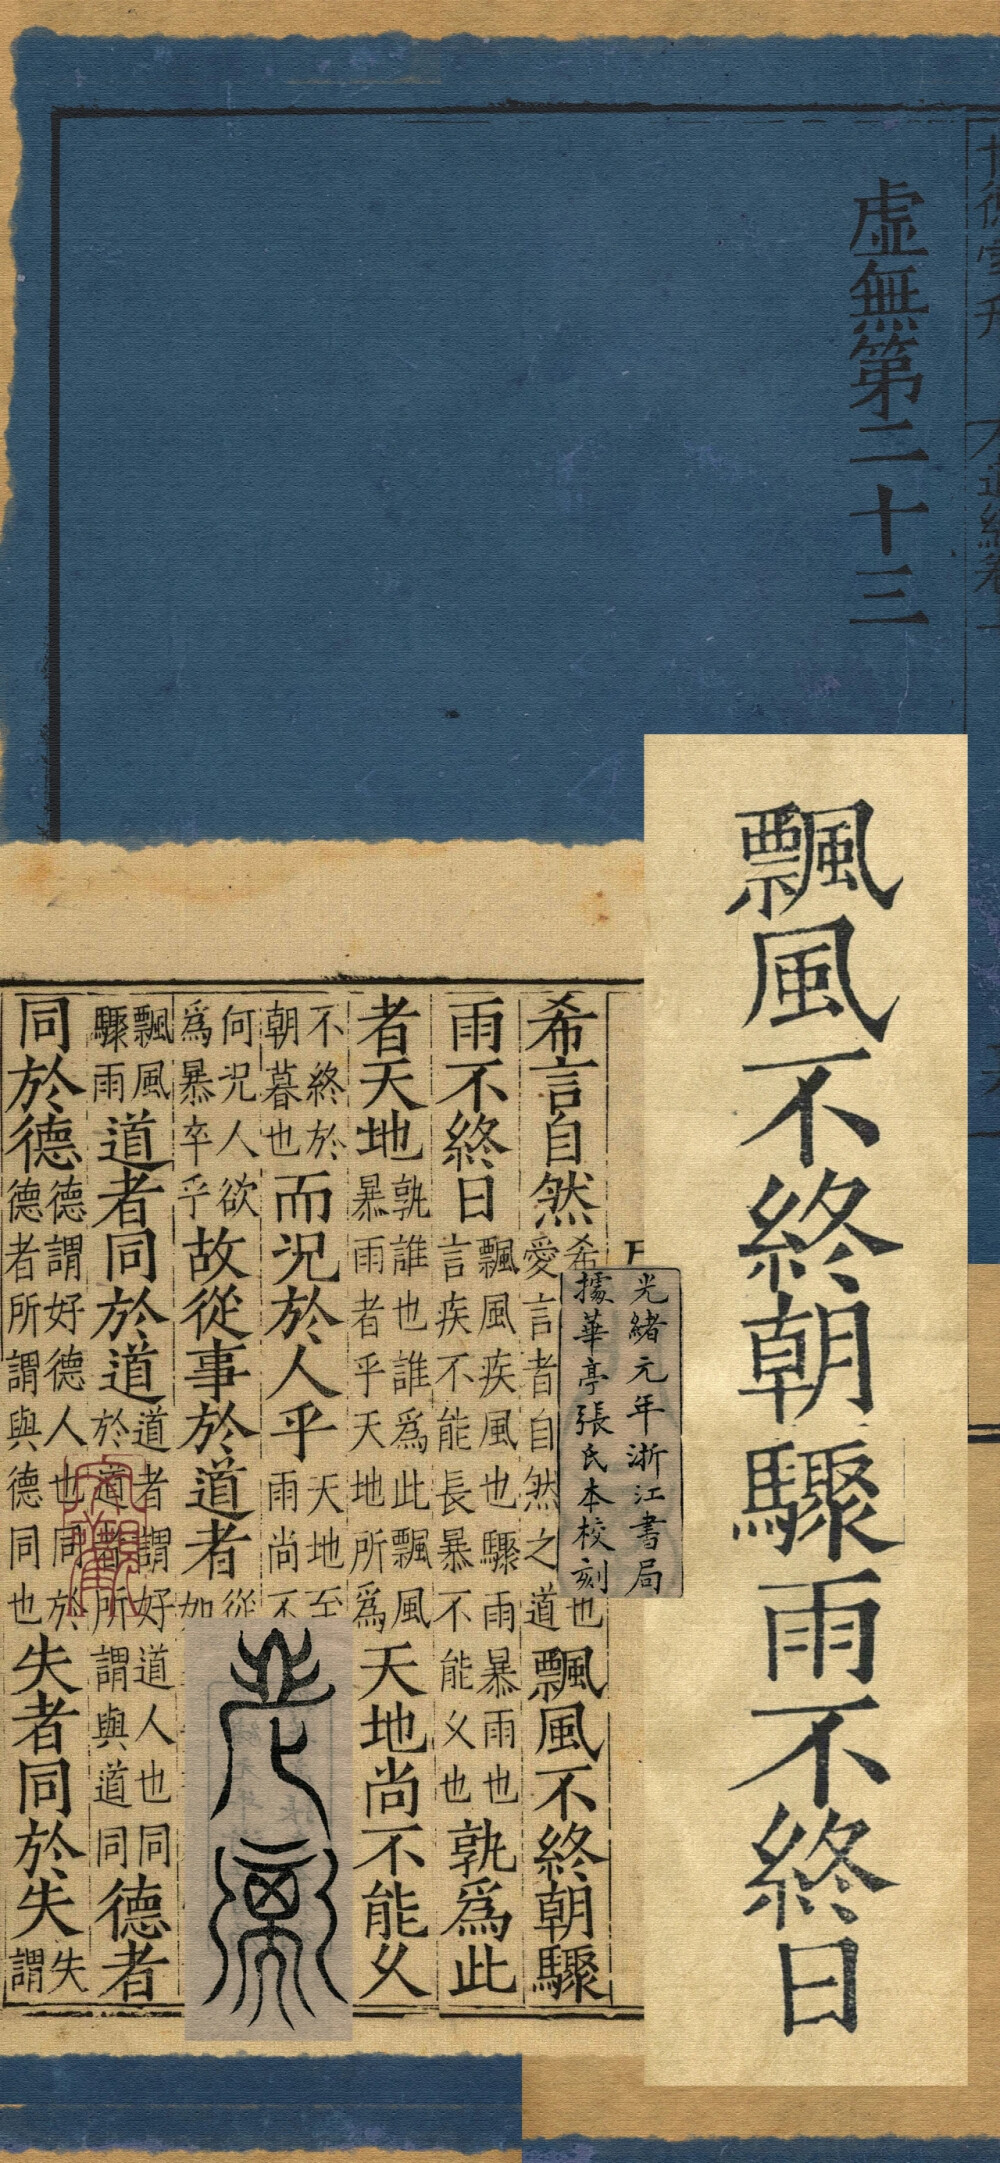 虛無第二十三
飄風不終朝驟雨不終日
光緒元年浙江書局
據華亭張氏本校刻
希言自然希也愛言者自然之道飄風不終朝驟
雨不終日飄風疾風也驟雨暴雨也言疾不能長暴不能久也孰爲此
者天地孰誰也誰爲此飄風暴雨者乎天地所爲天地尚不能久
不終於朝暮也而況於人乎天地至雨尚不
何況人欲爲暴卒乎故從事於道者從如
飄風驟雨道者同於道道者謂好道人也同於道者所謂與道同德者
同於德德謂好德人也同於德者所謂與德同也失者同於失失謂